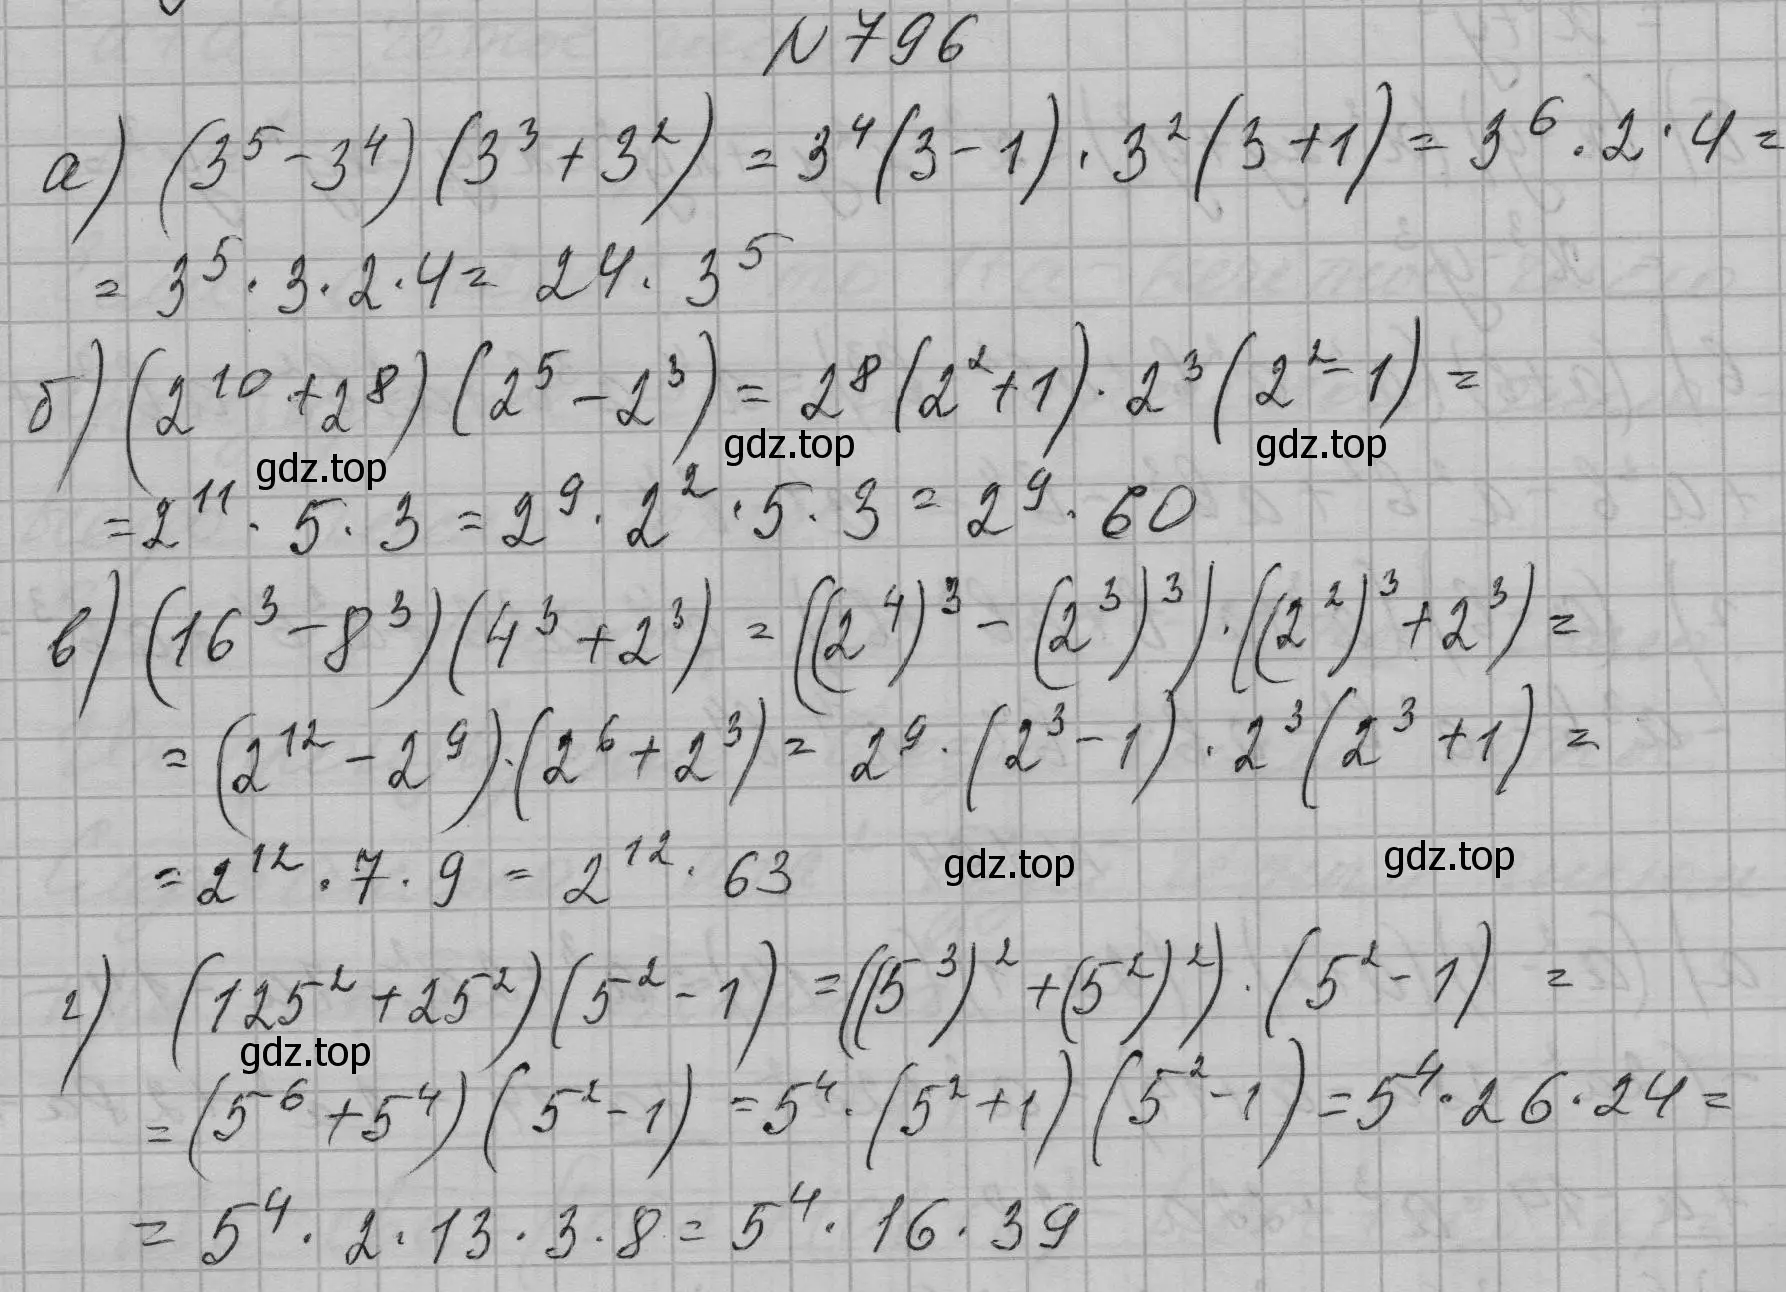 N 796
а) (3⁵ - 3⁴) (3³ + 3²) = 3⁴(3 - 1) · 3²(3 + 1) = 3⁶ · 2 · 4 =
= 3⁵ · 3 · 2 · 4 = 24 · 3⁵
б) (2¹⁰ + 2⁸) (2⁵ - 2³) = 2⁸ (2² + 1) · 2³ (2² - 1) =
gdz.top gdz.top gdz.top
= 2¹¹ · 5 · 3 = 2⁹ · 2² · 5 · 3 = 2⁹ · 60
в) (16³ - 8³) (4³ + 2³) = ((2⁴)³ - (2³)³) · ((2²)³ + 2³) =
= (2¹² - 2⁹) · (2⁶ + 2³) = 2⁹ · (2³ - 1) · 2³ (2³ + 1) =
= 2¹² · 7 · 9 = 2¹² · 63
gdz.top gdz.top
г) (125² + 25²) (5² - 1) = ((5³)² + (5²)²) · (5² - 1) =
gdz.top
= (5⁶ + 5⁴) (5² - 1) = 5⁴ · (5² + 1) (5² - 1) = 5⁴ · 26 · 24 =
= 5⁴ · 2 · 13 · 3 · 8 = 5⁴ · 16 · 39